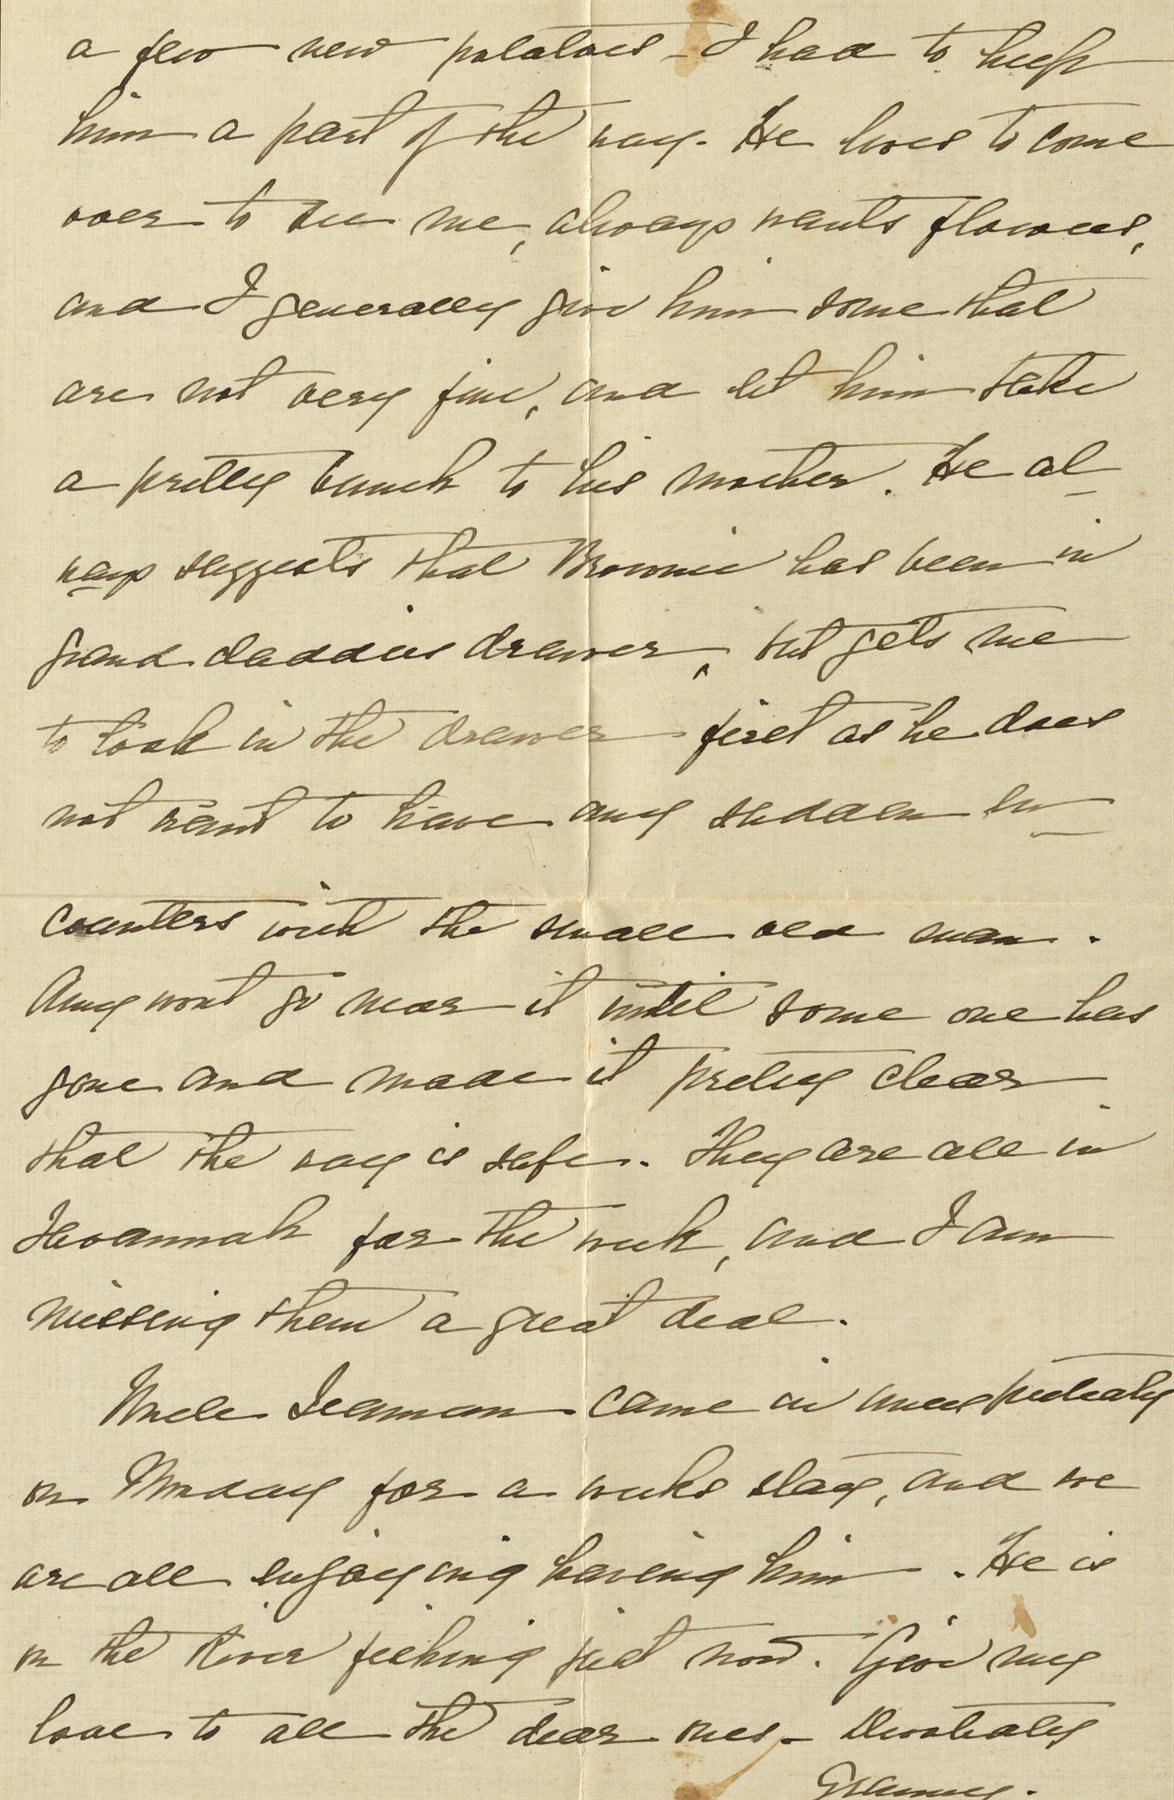 a few new potatoes – I had to help
him a part of the way. He loves to come
over to see me, always wants flowers,
and I generally give him some that
are not very fine, and let him take
a pretty bunch to his mother. He al-
ways suggests that Brownie has been in
grand daddies drawer, but gets me
to look in the drawer first as he does
not want to have any sudden en-
counters with the small old man.
Amy wont go near it until some one has
gone and made it pretty clear
that the way is safe. They are all in
Savannah for the week, and I am
missing them a great deal.
Uncle Seaman came in unexpectedly
on Monday for a weeks stay, and we
are all enjoying having him. He is
on the River fishing just now. Give my
love to all the dear ones – Devotedly
Granny.